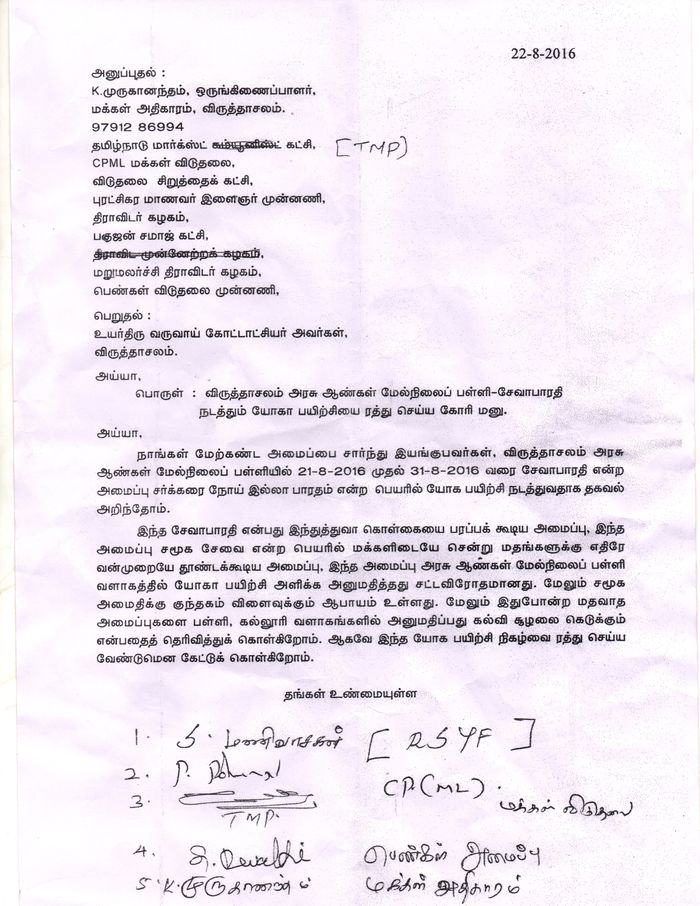 22-8-2016
அனுப்புதல் :
K.முருகானந்தம், ஒருங்கிணைப்பாளர்,
மக்கள் அதிகாரம், விருத்தாசலம்.
97912 86994
தமிழ்நாடு மார்க்ஸ்ட் கம்யூனிஸ்ட் கட்சி, [TMP]
CPML மக்கள் விடுதலை,
விடுதலை சிறுத்தைக் கட்சி,
புரட்சிகர மாணவர் இளைஞர் முன்னணி,
திராவிடர் கழகம்,
பகுஜன் சமாஜ் கட்சி,
திராவிட முன்னேற்றக் கழகம்,
மறுமலர்ச்சி திராவிடர் கழகம்,
பெண்கள் விடுதலை முன்னணி,
பெறுதல் :
உயர்திரு வருவாய் கோட்டாட்சியர் அவர்கள்,
விருத்தாசலம்.
அய்யா,
பொருள் : விருத்தாசலம் அரசு ஆண்கள் மேல்நிலைப் பள்ளி-சேவாபாரதி
நடத்தும் யோகா பயிற்சியை ரத்து செய்ய கோரி மனு.
அய்யா,
நாங்கள் மேற்கண்ட அமைப்பை சார்ந்து இயங்குபவர்கள், விருத்தாசலம் அரசு
ஆண்கள் மேல்நிலைப் பள்ளியில் 21-8-2016 முதல் 31-8-2016 வரை சேவாபாரதி என்ற
அமைப்பு சர்க்கரை நோய் இல்லா பாரதம் என்ற பெயரில் யோக பயிற்சி நடத்துவதாக தகவல்
அறிந்தோம்.
இந்த சேவாபாரதி என்பது இந்துத்துவா கொள்கையை பரப்பக் கூடிய அமைப்பு, இந்த
அமைப்பு சமூக சேவை என்ற பெயரில் மக்களிடையே சென்று மதங்களுக்கு எதிரே
வன்முறையே தூண்டக்கூடிய அமைப்பு, இந்த அமைப்பு அரசு ஆண்கள் மேல்நிலைப் பள்ளி
வளாகத்தில் யோகா பயிற்சி அளிக்க அனுமதித்தது சட்டவிரோதமானது. மேலும் சமூக
அமைதிக்கு குந்தகம் விளைவுக்கும் ஆபாயம் உள்ளது. மேலும் இதுபோன்ற மதவாத
அமைப்புகளை பள்ளி, கல்லூரி வளாகங்களில் அனுமதிப்பது கல்வி சூழலை கெடுக்கும்
என்பதைத் தெரிவித்துக் கொள்கிறோம். ஆகவே இந்த யோக பயிற்சி நிகழ்வை ரத்து செய்ய
வேண்டுமென கேட்டுக் கொள்கிறோம்.
தங்கள் உண்மையுள்ள
1. S. மணிவாசகன் [RSYF]
2. P.
3. CP(ML). மக்கள் விடுதலை
TMP.
4. பெண்கள் அமைப்பு
5. K. முருகானந்தம் மக்கள் அதிகாரம்